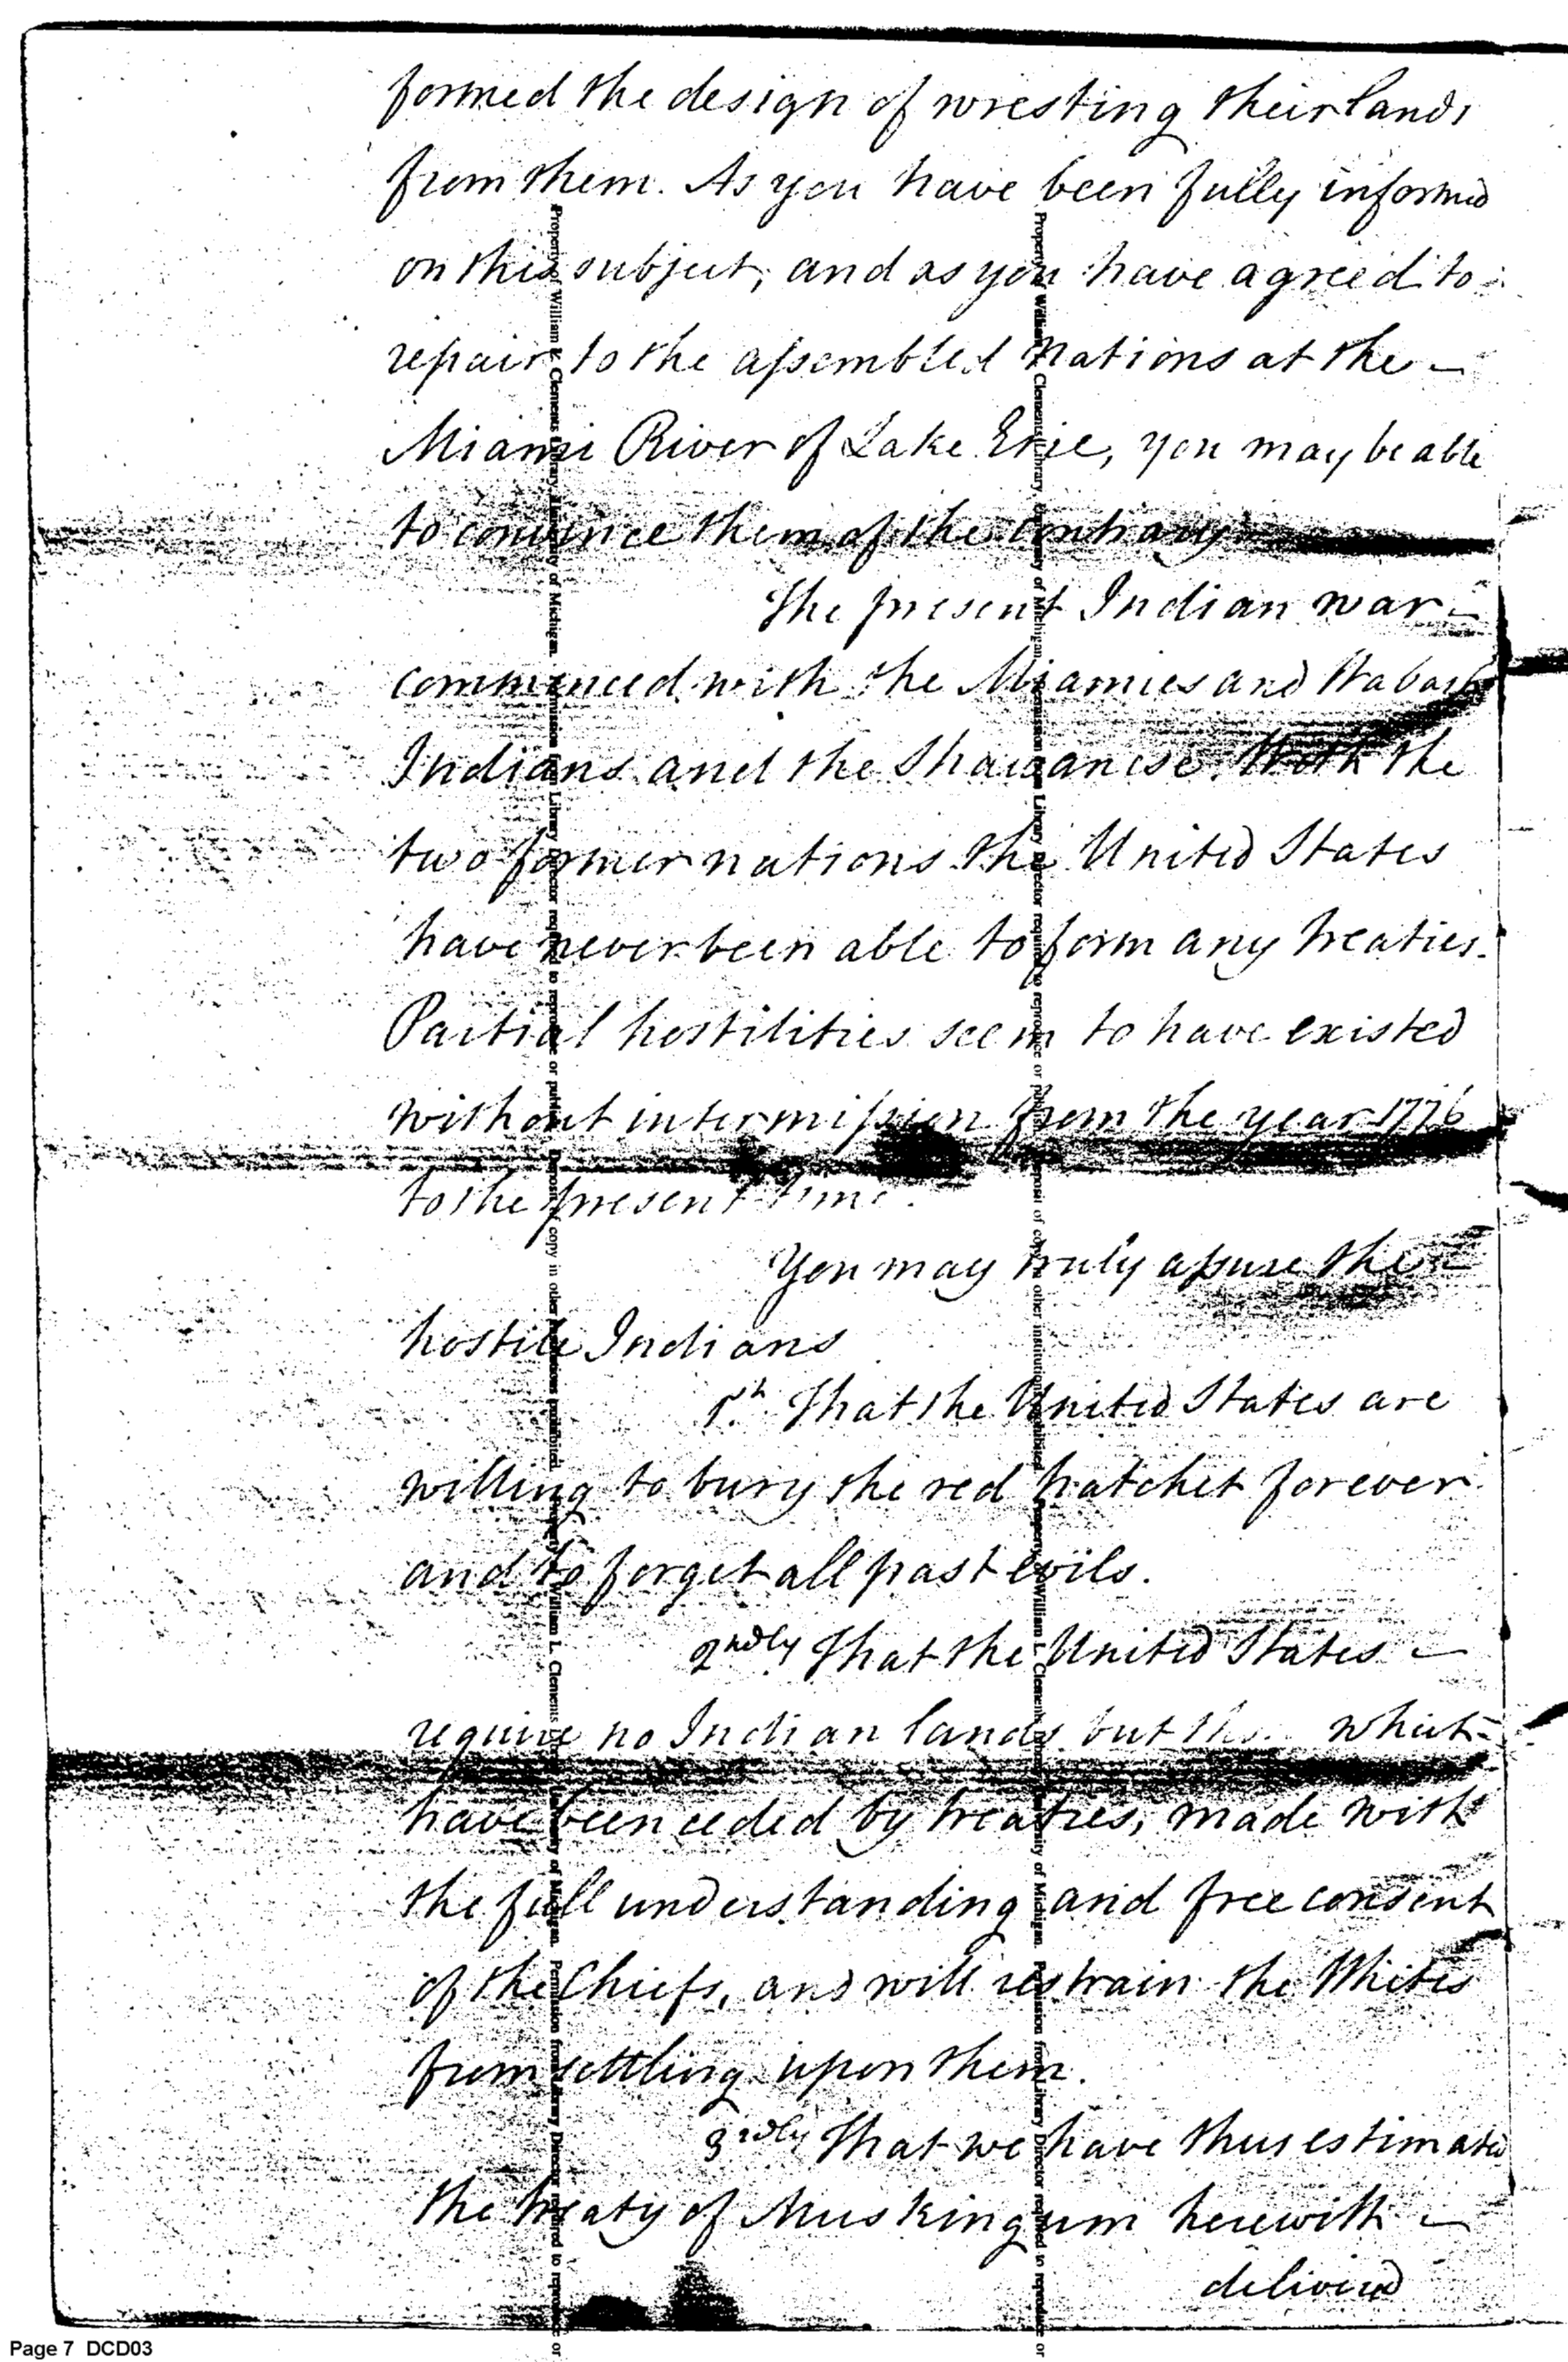 formed the design of wresting their lands
from them. As you have been fully informed
on this subject, and as you have agreed to
repair to the assembled nations at the —
Miami River of Lake Erie, you may be able
to convince them of the contrary.
The present Indian war —
commenced with the Miamies and Wabash
Indians and the Shawanese. With the
two former nations the United States
have never been able to form any treaties.
Partial hostilities seem to have existed
without intermission from the year 1776
to the present time.
You may truly assure the —
hostile Indians
That the United States are
willing to bury the red hatchet forever
and to forget all past evils.
2ndly That the United States —
require no Indian lands but which
have been ceded by treaties, made with
the full understanding and free consent
of the Chiefs, and will restrain the Whites
from settling upon them.
3rdly That we have thus estimated
the treaty of Muskingum herewith —
delivered
Property of William L. Clements Library, University of Michigan. Permission from Library Director required to reproduce or publish. Deposit of copy in other institutions prohibited.
Property of William L. Clements Library, University of Michigan. Permission from Library Director required to reproduce or
Property of William L. Clements Library, University of Michigan. Permission from Library Director required to reproduce or publish. Deposit of copy in other institutions prohibited.
Property of William L. Clements Library, University of Michigan. Permission from Library Director required to reproduce or
Page 7 DCD03